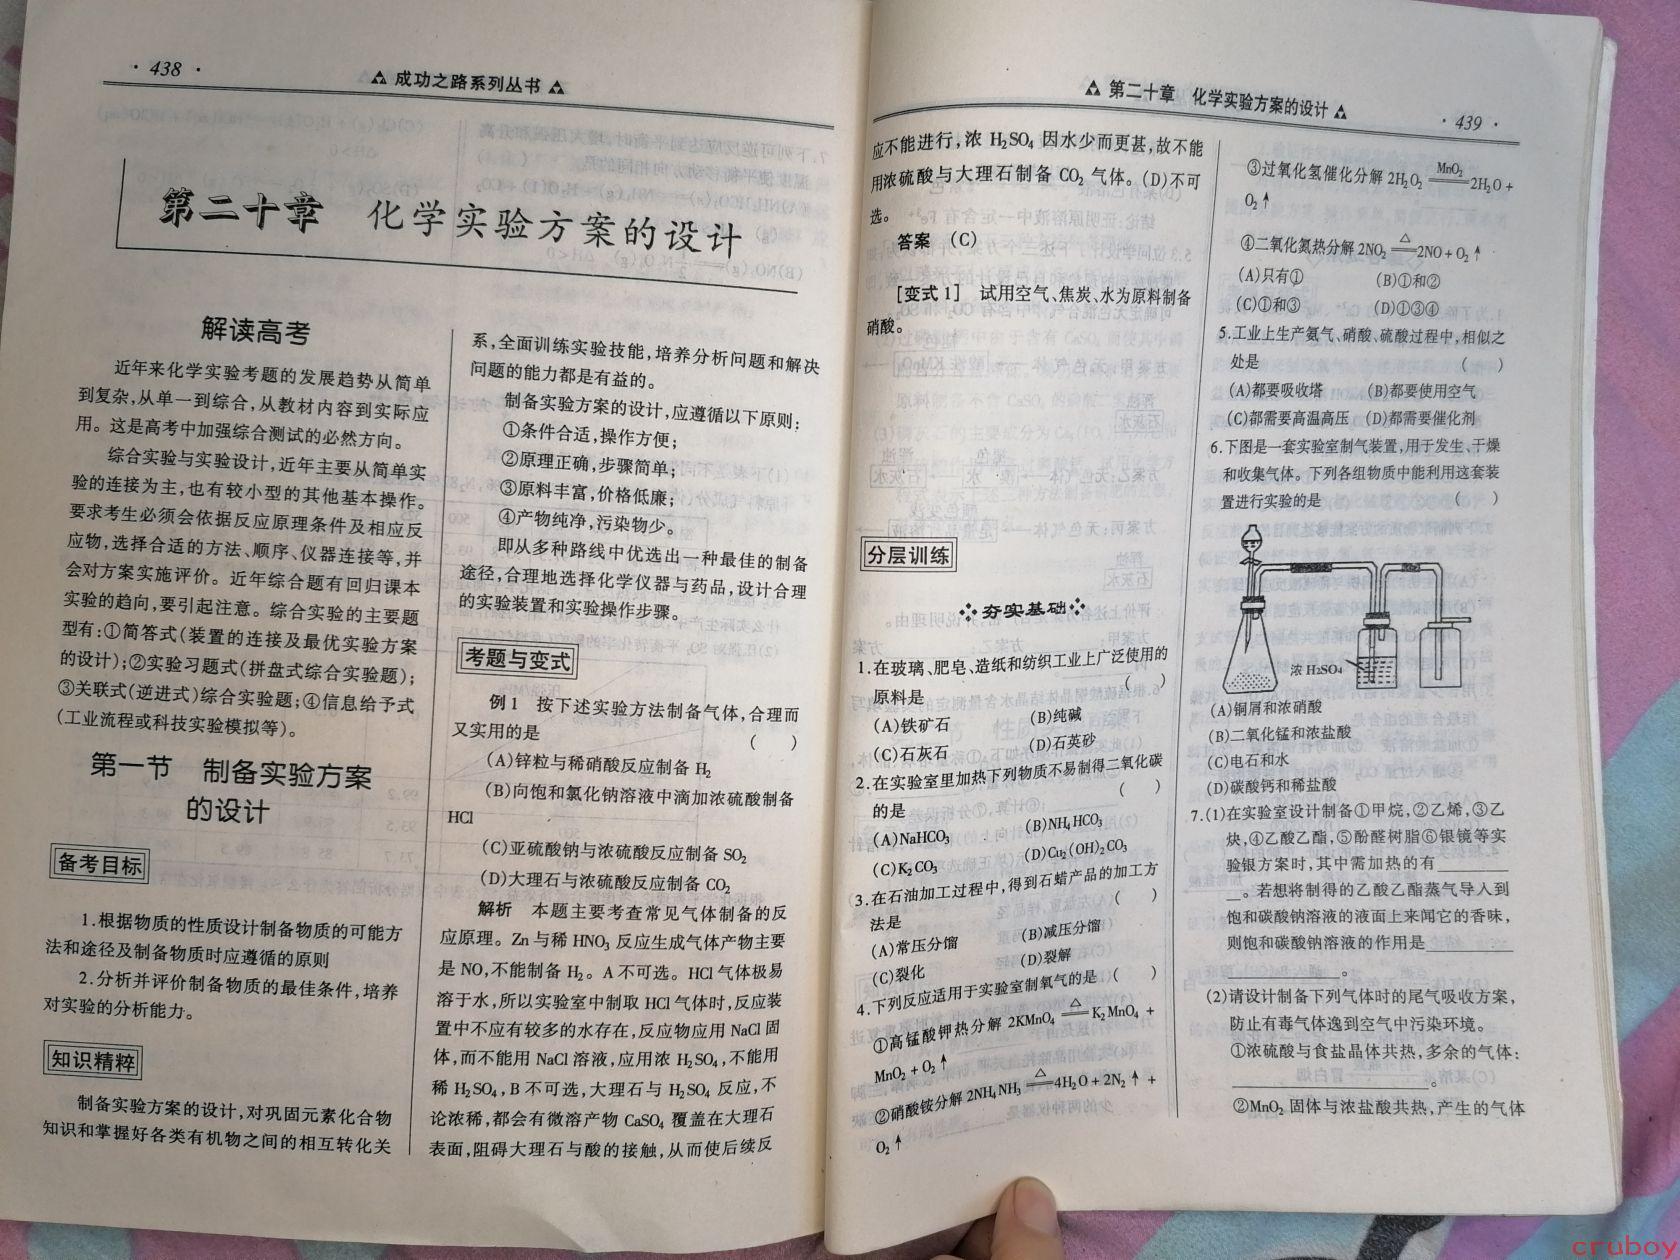 · 438 ·
成功之路系列丛书
第二十章 化学实验方案的设计
解读高考
近年来化学实验考题的发展趋势从简单
到复杂,从单一到综合,从教材内容到实际应
用。这是高考中加强综合测试的必然方向。
综合实验与实验设计,近年主要从简单实
验的连接为主,也有较小型的其他基本操作。
要求考生必须会依据反应原理条件及相应反
应物,选择合适的方法、顺序、仪器连接等,并
会对方案实施评价。近年综合题有回归课本
实验的趋向,要引起注意。综合实验的主要题
型有:①简答式(装置的连接及最优实验方案
的设计);②实验习题式(拼盘式综合实验题);
③关联式(逆进式)综合实验题;④信息给予式
(工业流程或科技实验模拟等)。
第一节 制备实验方案
的设计
备考目标
1.根据物质的性质设计制备物质的可能方
法和途径及制备物质时应遵循的原则
2.分析并评价制备物质的最佳条件,培养
对实验的分析能力。
知识精粹
制备实验方案的设计,对巩固元素化合物
知识和掌握好各类有机物之间的相互转化关
系,全面训练实验技能,培养分析问题和解决
问题的能力都是有益的。
制备实验方案的设计,应遵循以下原则:
①条件合适,操作方便;
②原理正确,步骤简单;
③原料丰富,价格低廉;
④产物纯净,污染物少。
即从多种路线中优选出一种最佳的制备
途径,合理地选择化学仪器与药品,设计合理
的实验装置和实验操作步骤。
考题与变式
例1 按下述实验方法制备气体,合理而
又实用的是 ( )
(A)锌粒与稀硝酸反应制备 H₂
(B)向饱和氯化钠溶液中滴加浓硫酸制备
HCl
(C)亚硫酸钠与浓硫酸反应制备 SO₂
(D)大理石与浓硫酸反应制备 CO₂
解析 本题主要考查常见气体制备的反
应原理。Zn 与稀 HNO₃ 反应生成气体产物主要
是 NO,不能制备 H₂。A 不可选。HCl 气体极易
溶于水,所以实验室中制取 HCl 气体时,反应装
置中不应有较多的水存在,反应物应用 NaCl 固
体,而不能用 NaCl 溶液,应用浓 H₂SO₄,不能用
稀 H₂SO₄,B 不可选,大理石与 H₂SO₄ 反应,不
论浓稀,都会有微溶产物 CaSO₄ 覆盖在大理石
表面,阻碍大理石与酸的接触,从而使后续反
第二十章 化学实验方案的设计
· 439 ·
应不能进行,浓 H₂SO₄ 因水少而更甚,故不能
用浓硫酸与大理石制备 CO₂ 气体。(D)不可
选。
答案 (C)
[变式1] 试用空气、焦炭、水为原料制备
硝酸。
分层训练
夯实基础
1.在玻璃、肥皂、造纸和纺织工业上广泛使用的
原料是 ( )
(A)铁矿石 (B)纯碱
(C)石灰石 (D)石英砂
2.在实验室里加热下列物质不易制得二氧化碳
的是 ( )
(A)NaHCO₃ (B)NH₄HCO₃
(C)K₂CO₃ (D)Cu₂(OH)₂CO₃
3.在石油加工过程中,得到石蜡产品的加工方
法是 ( )
(A)常压分馏 (B)减压分馏
(C)裂化 (D)裂解
4.下列反应适用于实验室制氧气的是 ( )
①高锰酸钾热分解 2KMnO₄ ══△══ K₂MnO₄ +
MnO₂ + O₂↑
②硝酸铵分解 2NH₄NH₃ ══△══ 4H₂O + 2N₂↑ +
O₂↑
③过氧化氢催化分解 2H₂O₂ ══MnO₂══ 2H₂O +
O₂↑
④二氧化氮热分解 2NO₂ ══△══ 2NO + O₂↑
(A)只有① (B)①和②
(C)①和③ (D)①③④
5.工业上生产氨气、硝酸、硫酸过程中,相似之
处是 ( )
(A)都要吸收塔 (B)都要使用空气
(C)都需要高温高压 (D)都需要催化剂
6.下图是一套实验室制气装置,用于发生、干燥
和收集气体。下列各组物质中能利用这套装
置进行实验的是 ( )
浓 H₂SO₄
(A)铜屑和浓硝酸
(B)二氧化锰和浓盐酸
(C)电石和水
(D)碳酸钙和稀盐酸
7.(1)在实验室设计制备①甲烷,②乙烯,③乙
炔,④乙酸乙酯,⑤酚醛树脂⑥银镜等实
验银方案时,其中需加热的有________
__。若想将制得的乙酸乙酯蒸气导入到
饱和碳酸钠溶液的液面上来闻它的香味,
则饱和碳酸钠溶液的作用是________
________。
(2)请设计制备下列气体时的尾气吸收方案,
防止有毒气体逸到空气中污染环境。
①浓硫酸与食盐晶体共热,多余的气体:
________。
②MnO₂ 固体与浓盐酸共热,产生的气体
cruboy